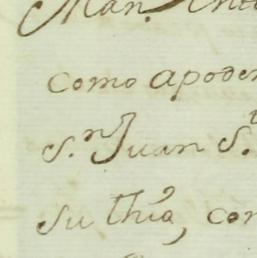 Man.
como apoder
S.n Juan S.t
su thia, con